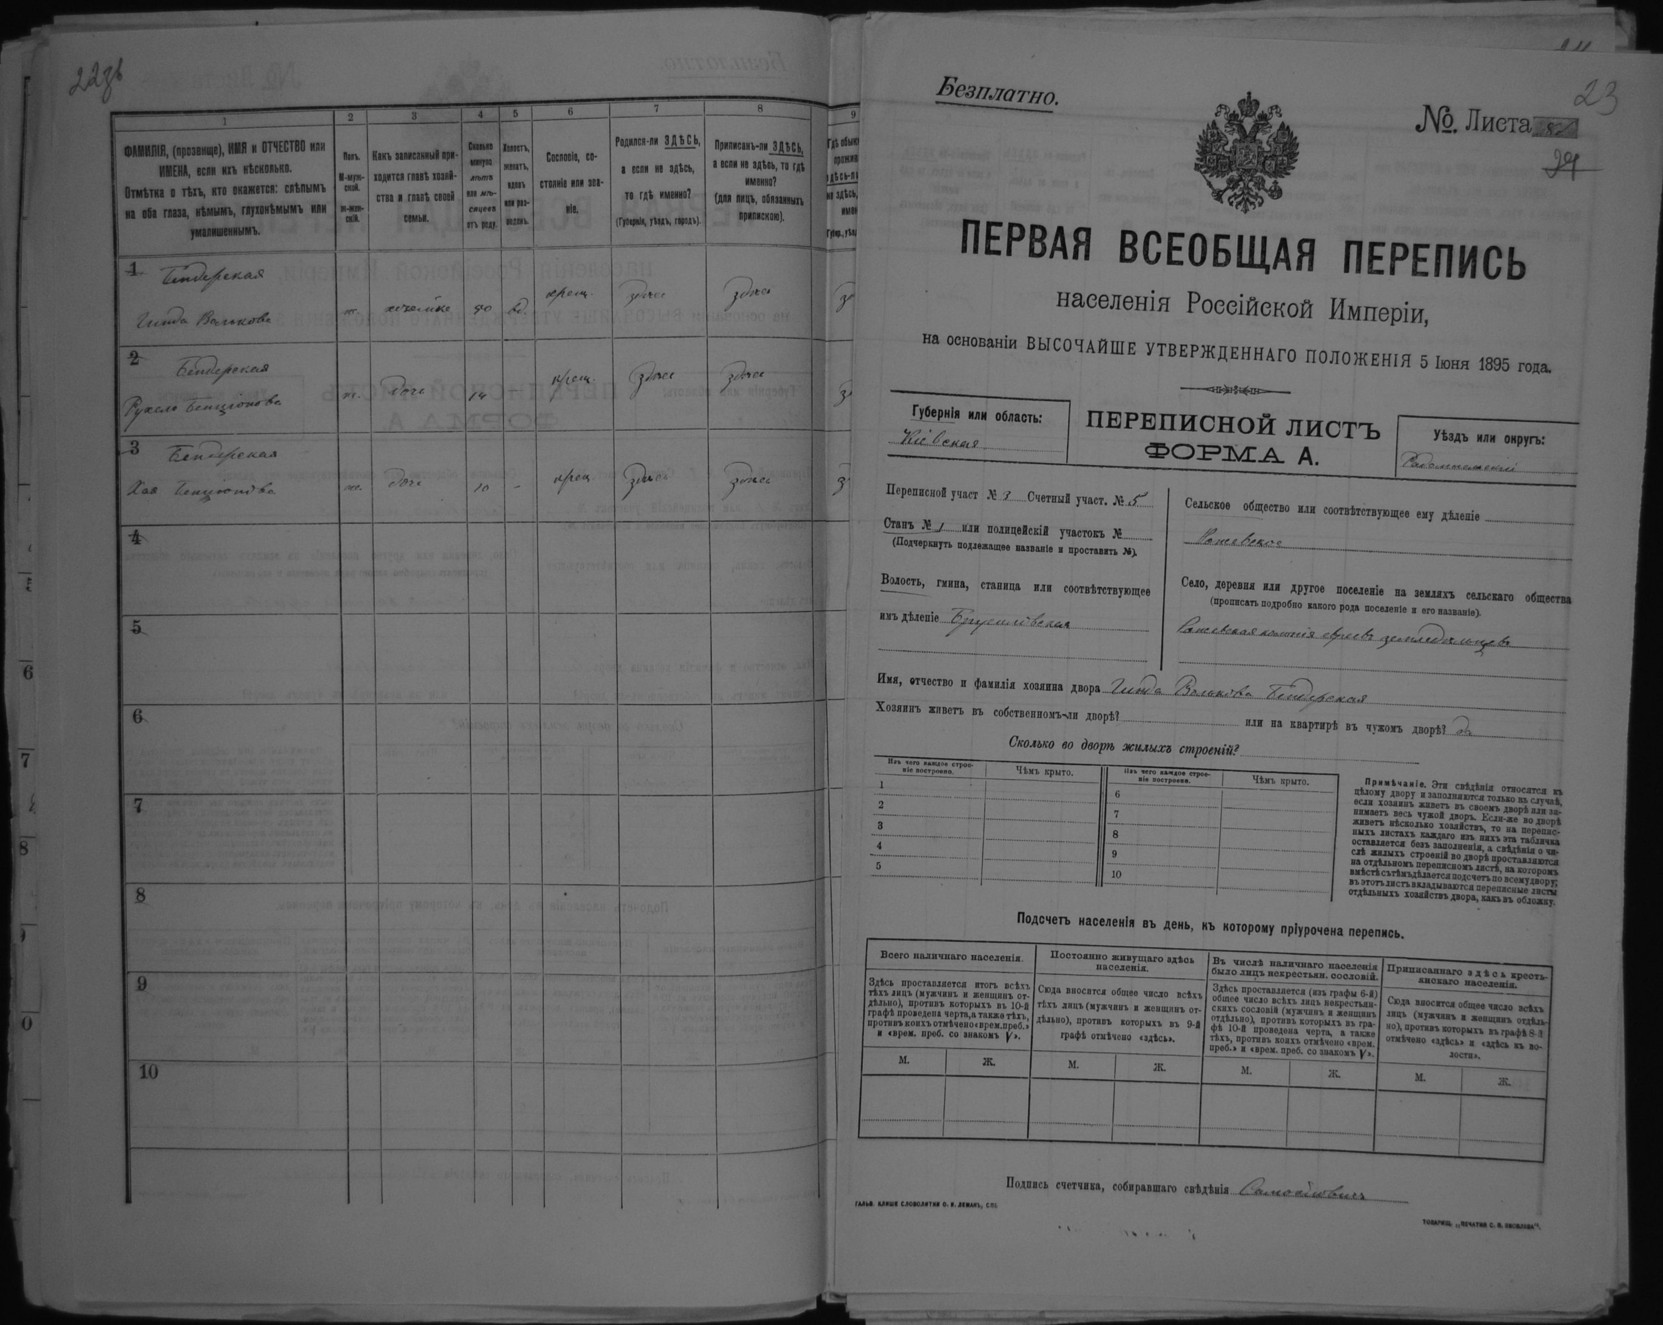 22об
1
2
3
4
5
6
7
8
9
ФАМИЛІЯ, (прозвище), ИМЯ и ОТЧЕСТВО или
ИМЕНА, если ихъ нѣсколько.
Отмѣтка о тѣхъ, кто окажется: слѣпымъ
на оба глаза, нѣмымъ, глухонѣмымъ или
умалишеннымъ.
Полъ.
М-муж-
ской.
ж-жен-
скій.
Какъ записанный при-
ходится главѣ хозяй-
ства и главѣ своей
семьи.
Сколько
минуло
лѣтъ
или мѣ-
сяцевъ
отъ роду.
Холостъ,
женатъ,
вдовъ
или раз-
веденъ.
Сословіе, со-
стояніе или зва-
ніе.
Родился-ли ЗДѢСЬ,
а если не здѣсь,
то гдѣ именно?
(Губернія, уѣздъ, городъ).
Приписанъ-ли ЗДѢСЬ,
а если не здѣсь, то гдѣ
именно?
(для лицъ, обязанныхъ
припискою).
1
Бендерская
Гинда Волькова
ж.
хозяйка
вд.
крещ.
здѣсь
здѣсь
2
Бендерская
Рухля Бенціонова
ж.
дочь
14
крещ.
здѣсь
здѣсь
3
Бендерская
Хая Бенціонова
ж.
дочь
10
-
крещ.
здѣсь
здѣсь
4
5
6
7
8
9
10
Безплатно.
23
№ Листа
ПЕРВАЯ ВСЕОБЩАЯ ПЕРЕПИСЬ
населенія Россійской Имперіи,
на основаніи ВЫСОЧАЙШЕ УТВЕРЖДЕННАГО ПОЛОЖЕНІЯ 5 Іюня 1895 года.
Губернія или область:
Кіевская
ПЕРЕПИСНОЙ ЛИСТЪ
ФОРМА А.
Уѣздъ или округъ:
Радомысльскій
Переписной участ № 3 Счетный участ. № 5
Станъ № 1 или полицейскій участокъ №
(Подчеркнуть подлежащее названіе и проставить №).
Волость, гмина, станица или соотвѣтствующее
имъ дѣленіе Брусиловская
Сельское общество или соотвѣтствующее ему дѣленіе
Село, деревня или другое поселеніе на земляхъ сельскаго общества
(прописать подробно какого рода поселеніе и его названіе).
колонія евреевъ земледѣльцевъ
Имя, отчество и фамилія хозяина двора Гинда Волькова Бендерская
Хозяинъ живетъ въ собственномъ-ли дворѣ? или на квартирѣ въ чужомъ дворѣ? да
Сколько во дворѣ жилыхъ строеній?
Изъ чего каждое строе-
ніе построено.
Чѣмъ крыто.
Изъ чего каждое строе-
ніе построено.
Чѣмъ крыто.
1
2
3
4
5
6
7
8
9
10
Примѣчаніе. Эти свѣдѣнія относятся къ
цѣлому двору и заполняются только въ случаѣ,
если хозяинъ живетъ въ своемъ дворѣ или за-
нимаетъ весь чужой дворъ. Если-же во дворѣ
живетъ нѣсколько хозяйствъ, то на перепис-
ныхъ листахъ каждаго изъ нихъ эта табличка
оставляется безъ заполненія, а свѣдѣнія о чи-
слѣ жилыхъ строеній во дворѣ проставляются
на отдѣльномъ переписномъ листѣ, на которомъ
вмѣстѣ съ тѣмъ дѣлается подсчетъ по всему двору;
въ этотъ листъ вкладываются переписные листы
отдѣльныхъ хозяйствъ двора, какъ въ обложку.
Подсчетъ населенія въ день, къ которому пріурочена перепись.
Всего наличнаго населенія.
Здѣсь проставляется итогъ всѣхъ
тѣхъ лицъ (мужчинъ и женщинъ от-
дѣльно), противъ которыхъ въ 10-й
графѣ проведена черта, а также тѣхъ,
противъ коихъ отмѣчено «врем. преб.»
и «врем. преб. со знакомъ V».
Постоянно живущаго здѣсь
населенія.
Сюда вносится общее число всѣхъ
тѣхъ лицъ (мужчинъ и женщинъ от-
дѣльно), противъ которыхъ въ 9-й
графѣ отмѣчено «здѣсь».
Въ числѣ наличнаго населенія
было лицъ некрестьян. сословій.
Здѣсь проставляется (изъ графы 6-й)
общее число всѣхъ лицъ некрестьян-
скихъ сословій (мужчинъ и женщинъ
отдѣльно), противъ которыхъ въ гра-
фѣ 10-й проведена черта, а также
тѣхъ, противъ коихъ отмѣчено «врем.
преб.» и «врем. преб. со знакомъ V».
Приписаннаго здѣсь кресть-
янскаго населенія.
Сюда вносится общее число всѣхъ
лицъ (мужчинъ и женщинъ отдѣль-
но), противъ которыхъ въ графѣ 8-й
отмѣчено «здѣсь» и «здѣсь въ во-
лости».
М.
Ж.
М.
Ж.
М.
Ж.
М.
Ж.
Подпись счетчика, собиравшаго свѣдѣнія
ГАЛЬВ. КЛИШЕ СЛОВОЛИТНИ О. И. ЛЕМАНЪ, СПБ